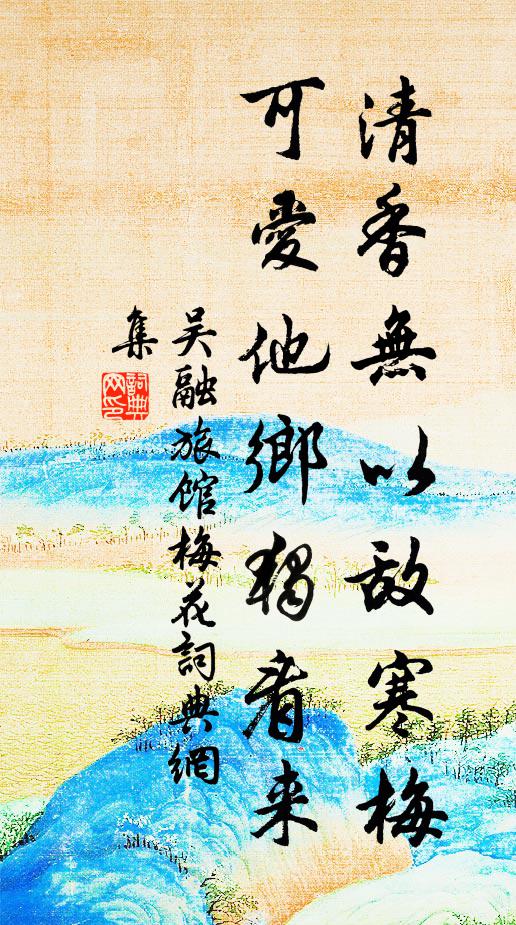 清香無以敌寒梅
可愛他鄉独看来
吴融旅馆梅花詞典網
集
詞典
网印